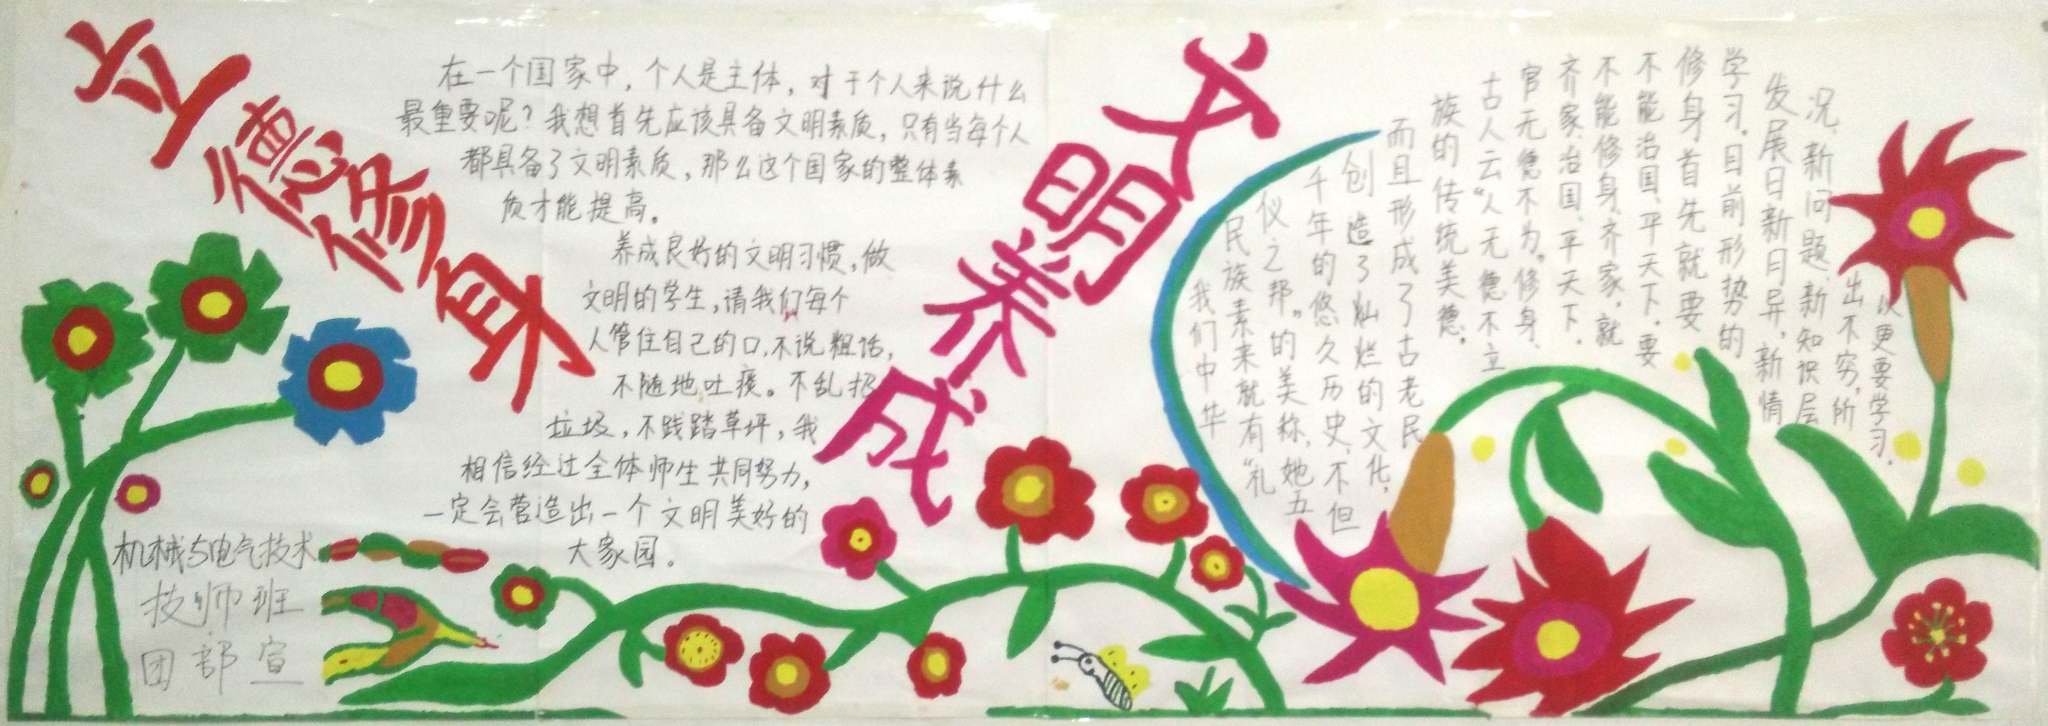 立德修身
在一个国家中,个人是主体,对于个人来说什么
最重要呢?我想首先应该具备文明素质,只有当每个人
都具备了文明素质,那么这个国家的整体素
质才能提高。
养成良好的文明习惯,做
文明的学生,请我们每个
人管住自己的口,不说粗话,
不随地吐痰。不乱扔
垃圾,不践踏草坪,我
相信经过全体师生共同努力,
一定会营造出一个文明美好的
大家园。
机械与电气技术
技师班
团部宣
文明养成
我们中华
民族素来就有“礼
仪之邦”的美称,她五
千年的悠久历史,不但
创造了灿烂的文化,
而且形成了古老民
族的传统美德。
古人云“人无德不立
官无德不为。”修身、
齐家、治国、平天下、
不能修身、齐家、就
不能治国、平天下、要
修身首先就要
学习。目前形势的
发展日新月异,新情
况、新问题、新知识层
出不穷,所
以更要学习。